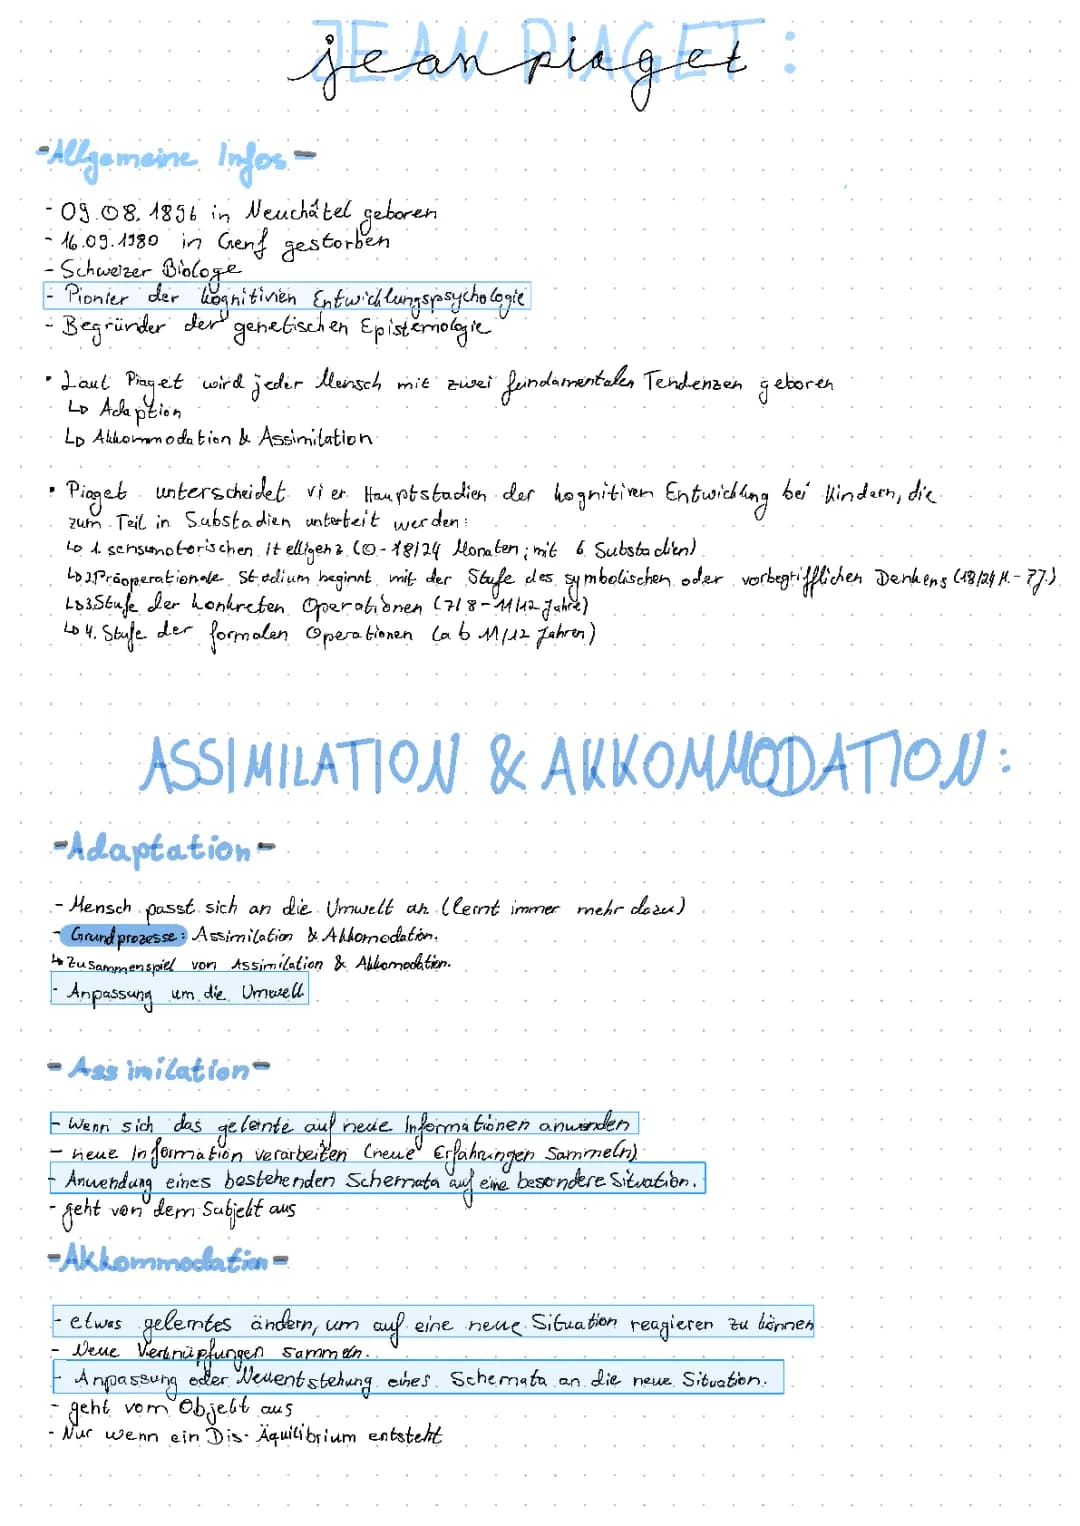 JEAN PIAGET:
jean piaget
-Allgemeine Infos-
- 09.08.1896 in Neuchâtel geboren
- 16.09.1980 in Genf gestorben
- Schweizer Biologe
- Pionier der kognitivien Entwicklungspsychologie
- Begründer der genetischen Epistemologie
• Laut Piaget wird jeder Mensch mit zwei fundamentalen Tendenzen geboren
↳ Adaption
↳ Akkommodation & Assimilation
• Piaget unterscheidet vier Hauptstadien der kognitiven Entwicklung bei Kindern, die
zum Teil in Substadien unterteit werden:
↳ 1. sensumotorischen Itelligenz (0-18/24 Monaten; mit 6 Substadien)
↳ 2. Präoperationale Stadium beginnt mit der Stufe des symbolischen oder vorbegrifflichen Denkens (18/24 M.-7J.)
↳ 3. Stufe der konkreten Operationen (7/8-11/12 Jahre)
↳ 4. Stufe der formalen Operationen (ab 11/12 Jahren)
ASSIMILATION & AKKOMMODATION:
-Adaptation-
- Mensch passt sich an die Umwelt an (lernt immer mehr dazu)
- Grundprozesse: Assimilation & Akkomodation.
↳ Zusammenspiel von Assimilation & Akkomodation.
- Anpassung um die Umwelt
- Assimilation-
- Wenn sich das gelernte auf neue Informationen anwenden
- neue Information verarbeiten (neue Erfahrungen Sammeln)
- Anwendung eines bestehenden Schemata auf eine besondere Situation.
- geht von dem Subjekt aus
-Akkommodation-
- etwas gelerntes ändern, um auf eine neue Situation reagieren zu können
- Neue Verknüpfungen sammeln.
- Anpassung oder Neuentstehung eines Schemata an die neue Situation.
- geht vom Objekt aus
- Nur wenn ein Dis-Äquilibrium entsteht